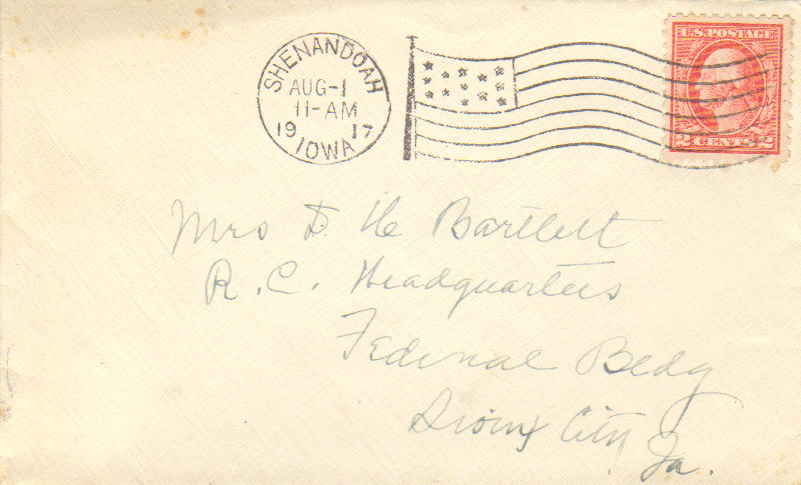 SHENANDOAH
AUG-1
11-AM
19 17
IOWA
U.S. POSTAGE
2 CENTS 2
Mrs D He Bartlett
R.C. Headquarters
Federal Bldg
Sioux City
Ia.